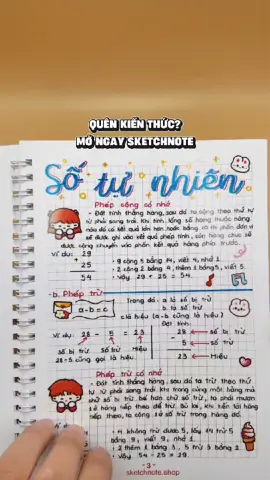 QUÊN KIẾN THỨC?
MỞ NGAY SKETCHNOTE
Số tự nhiên
Phép cộng có nhớ
- Đặt tính thẳng hàng, sau đó ta cộng theo thứ tự
từ phải sang trái. Khi tính tổng số hàng thuộc hàng
nào đó có kết quả lớn hơn hoặc bằng 10 thì phần đơn vị
sẽ được ghi vào kết quả phép tính, còn hàng chục sẽ
được cộng chuyển vào phần kết quả hàng phía trước.
Ví dụ: 29
25
54
- 9 cộng 5 bằng 14, viết 4, nhớ 1.
- 2 cộng 2 bằng 4, thêm 1 bằng 5, viết 5.
- Vậy 29 + 25 = 54.
b. Phép trừ
a-b=c
Trong đó: a là số bị trừ
b là số trừ
c là hiệu (a-b cũng là hiệu)
Đặt tính:
Ví dụ: 28 - 5 = 23
số bị trừ số trừ Hiệu
28-5 cũng gọi là hiệu
28 số bị trừ
5 số trừ
23 Hiệu
Phép trừ có nhớ
- Đặt tính thẳng hàng, sau đó ta trừ theo thứ
tự từ phải sang trái. Khi trừ trong cùng một hàng mà
chữ số bị trừ bé hơn chữ số trừ, ta phải mượn
1 ở hàng tiếp theo để trừ. Sau đó, khi tiến tới hàng
tiếp theo, ta cộng 1 ở số trừ trong hàng đó.
- 4 không trừ được 5, lấy 14 trừ 5
bằng 9, viết 9, nhớ 1.
- 2 thêm 1 bằng 3, 5 trừ 3 bằng 2.
- Vậy 54 - 25 = 29.
- 3 -
sketchnote.shop